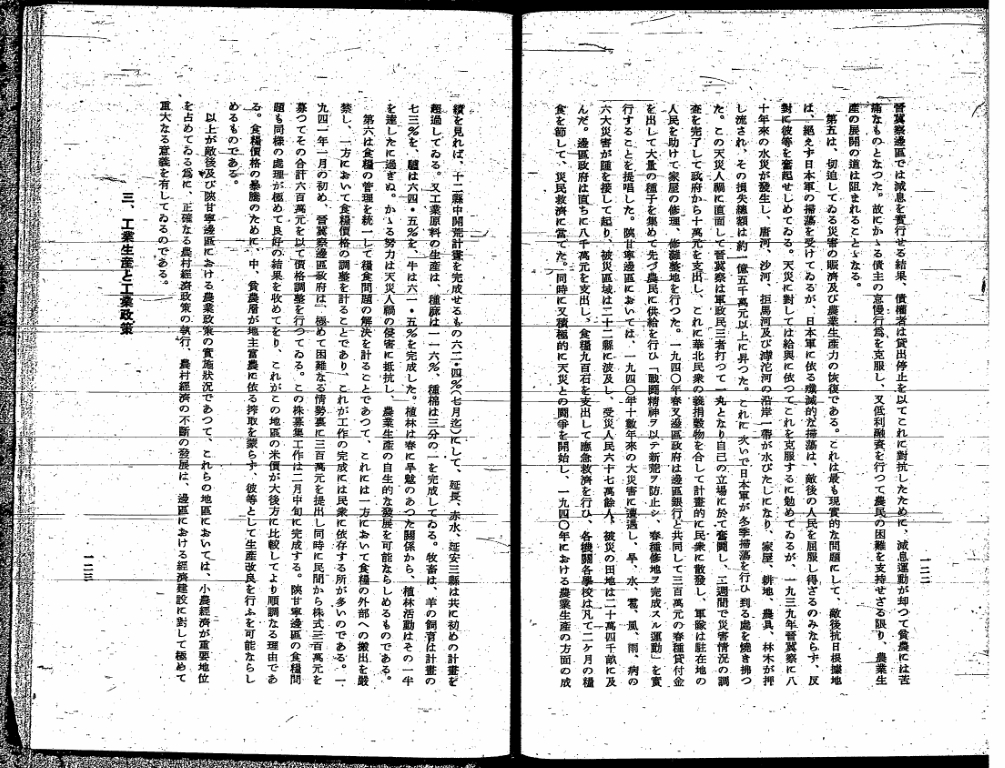 晉冀察邊區では減息を實行せる結果、債權者は貸出停止を以てこれに對抗したために、減息運動が却つて貧農には苦
痛なものとなつた。故にかゝる債主の怠慢行爲を克服し、又低利融資を行つて農民の困難を支持せざる限り、農業生
產の展開の道は阻まれることゝなる。
第五は、切迫してゐる災害の賑濟及び農業生產力の恢復である。これは最も現實的な問題にして、敵後抗日根據地
は、絕えず日本軍の掃蕩を受けてゐるが、日本軍に依る殲滅的な掃蕩は、敵後の人民を屈服し得ざるのみならず、反
對に彼等を奮起せしめてゐる。天災に對しては給與に依つてこれを克服するに勉めてゐるが、一九三九年晉冀察に八
十年來の水災が發生し、唐河、沙河、拒馬河及び滹沱河の沿岸一帶が水びたしになり、家屋、耕地、農具、林木が押
し流され、その損失總額は約一億五千萬元以上に昇つた。これに次いで日本軍が冬季掃蕩を行ひ到る處を燒き拂つ
た。この天災人禍に直面して晉冀察は軍政民三者打つて一丸となり自己の立場に於て奮鬪し、二週間で災害情況の調
査を完了して政府から十萬元を支出し、これに華北民衆の義捐穀物を合して計畫的に民衆に散發し、軍隊は駐在地の
人民を助けて家屋の修理、修灘墊地を行つた。一九四〇年春又邊區政府は邊區銀行と共同して三百萬元の春種貸付金
を出して大量の種子を集めて先づ農民に供給を行ひ「戰鬪精神ヲ以テ新荒ヲ防止シ、春種修地ヲ完成スル運動」を實
行することを提唱した。陝甘寧邊區においては、一九四〇年十數年來の大災害に遭遇し、旱、水、雹、風、雨、病の
六大災害が踵を接して起り、被災區域は二十二縣に波及し、受災人民六十七萬餘人、被災の田地は二十萬四千畝に及
んだ。邊區政府は直ちに八千萬元を支出し、食糧九百石を支出して應急救濟を行ひ、各機關各學校は凡て二ケ月の糧
食を節して、災民救濟に當てた。同時に又積極的に天災との鬪爭を開始し、一九四〇年における農業生產の方面の成
一二二
績を見れば、十二縣中開荒計畫を完成せるもの六二・四%(七月迄)にして、延長、赤水、延安三縣は共に初めの計畫を
超過してゐる。又工業原料の生產は、種麻は一一六%、種棉は三分の一を完成してゐる。牧畜は、羊の飼育は計畫の
七三%を、驢は六四・五%を、牛は六一・五%を完成した。植林は春に旱魃のあつた關係から、植林活動はその一半
を達したに過ぎぬ。かゝる努力は天災人禍の侵害に抵抗し、農業生產の自生的な發展を可能ならしめるものである。
第六は食糧の管理を統一して糧食問題の解決を計ることであつて、これには一方において食糧の外部への搬出を嚴
禁し、一方において食糧價格の調整を計ることであり、これが工作の完成には民衆に依存する所が多いのである。一
九四一年一月の初め、晉冀察邊區政府は、極めて困難なる情勢裏に三百萬元を提出し同時に民間から株式三百萬元を
募つてその合計六百萬元を以て價格調整を行つてゐる。この株募集工作は二月中旬に完成する。陝甘寧邊區の食糧問
題も同樣の處理が極めて良好の結果を收めてをり、これがこの地區の米價が大後方に比較してより順調なる理由であ
る。食糧價格の暴騰のために、中、貧農層が地主富農に依る搾取を蒙らず、彼等として生產改良を行ふを可能ならし
めるものである。
以上が敵後及び陝甘寧邊區における農業政策の實施狀況であつて、これらの地區においては、小農經濟が重要地位
を占めてゐる爲に、正確なる農村經濟政策の執行、農村經濟の不斷の發展は、邊區における經濟建設に對して極めて
重大なる意義を有してゐるのである。
三、工業生產と工業政策
一二三